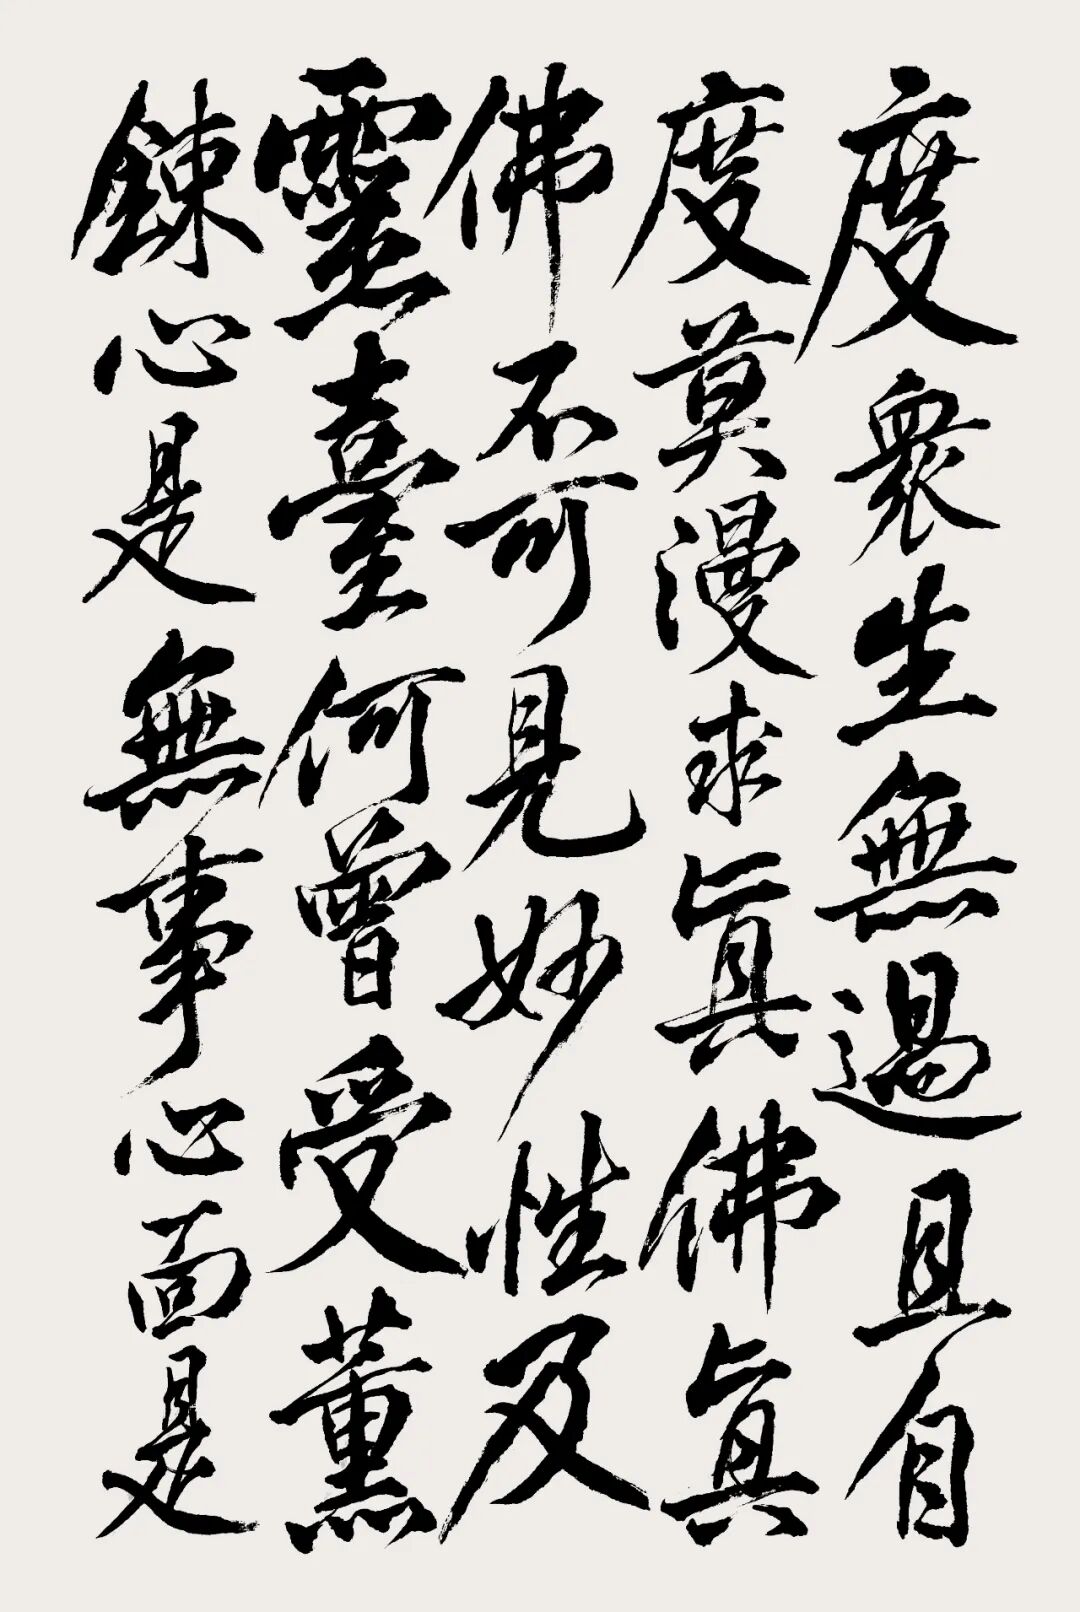 度衆生無過且自
度莫漫求真佛真
佛不可見妙性及
靈臺何曾受薰
鍊心是無事心面是